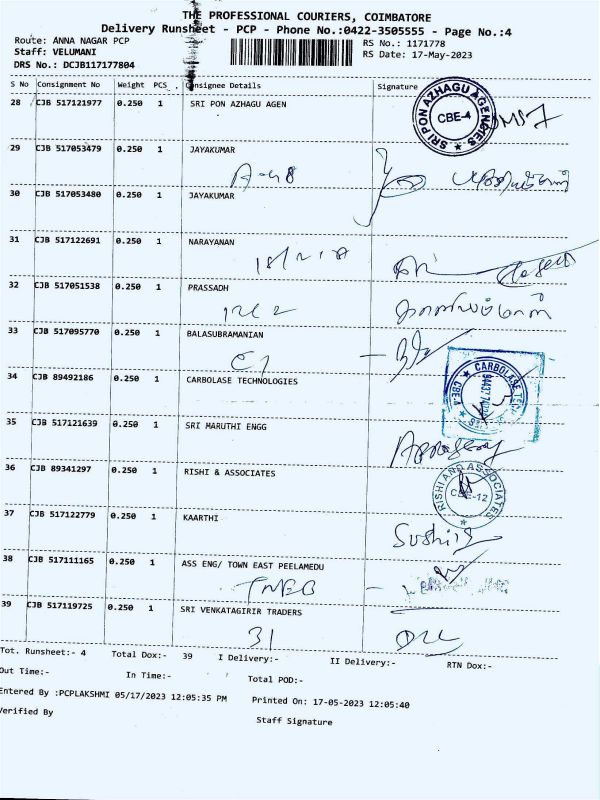 THE PROFESSIONAL COURIERS, COIMBATORE
Delivery Runsheet - PCP - Phone No.:0422-3505555 - Page No.:4
Route: ANNA NAGAR PCP RS No.: 1171778
Staff: VELUMANI RS Date: 17-May-2023
DRS No.: DCJB117177804
S No Consignment No Weight PCS Consignee Details Signature
28 CJB 517121977 0.250 1 SRI PON AZHAGU AGEN
SRI PON AZHAGU AGENCIES
CBE-4
29 CJB 517053479 0.250 1 JAYAKUMAR
30 CJB 517053480 0.250 1 JAYAKUMAR
31 CJB 517122691 0.250 1 NARAYANAN
32 CJB 517051538 0.250 1 PRASSADH
33 CJB 517095770 0.250 1 BALASUBRAMANIAN
34 CJB 89492186 0.250 1 CARBOLASE TECHNOLOGIES
35 CJB 517121639 0.250 1 SRI MARUTHI ENGG
36 CJB 89341297 0.250 1 RISHI & ASSOCIATES
RISHI AND ASSOCIATES
CBE-12
37 CJB 517122779 0.250 1 KAARTHI
38 CJB 517111165 0.250 1 ASS ENG/ TOWN EAST PEELAMEDU
TNEB
39 CJB 517119725 0.250 1 SRI VENKATAGIRIR TRADERS
31
Tot. Runsheet:- 4 Total Dox:- 39 I Delivery:- II Delivery:- RTN Dox:-
Out Time:- In Time:- Total POD:-
Entered By :PCPLAKSHMI 05/17/2023 12:05:35 PM Printed On: 17-05-2023 12:05:40
Verified By Staff Signature